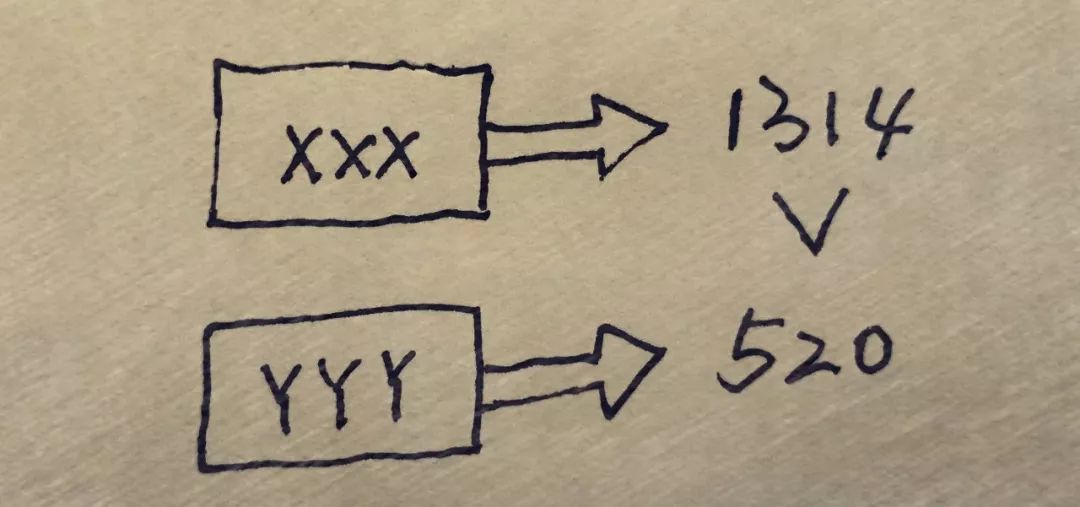 XXX
1314
V
YYY
520